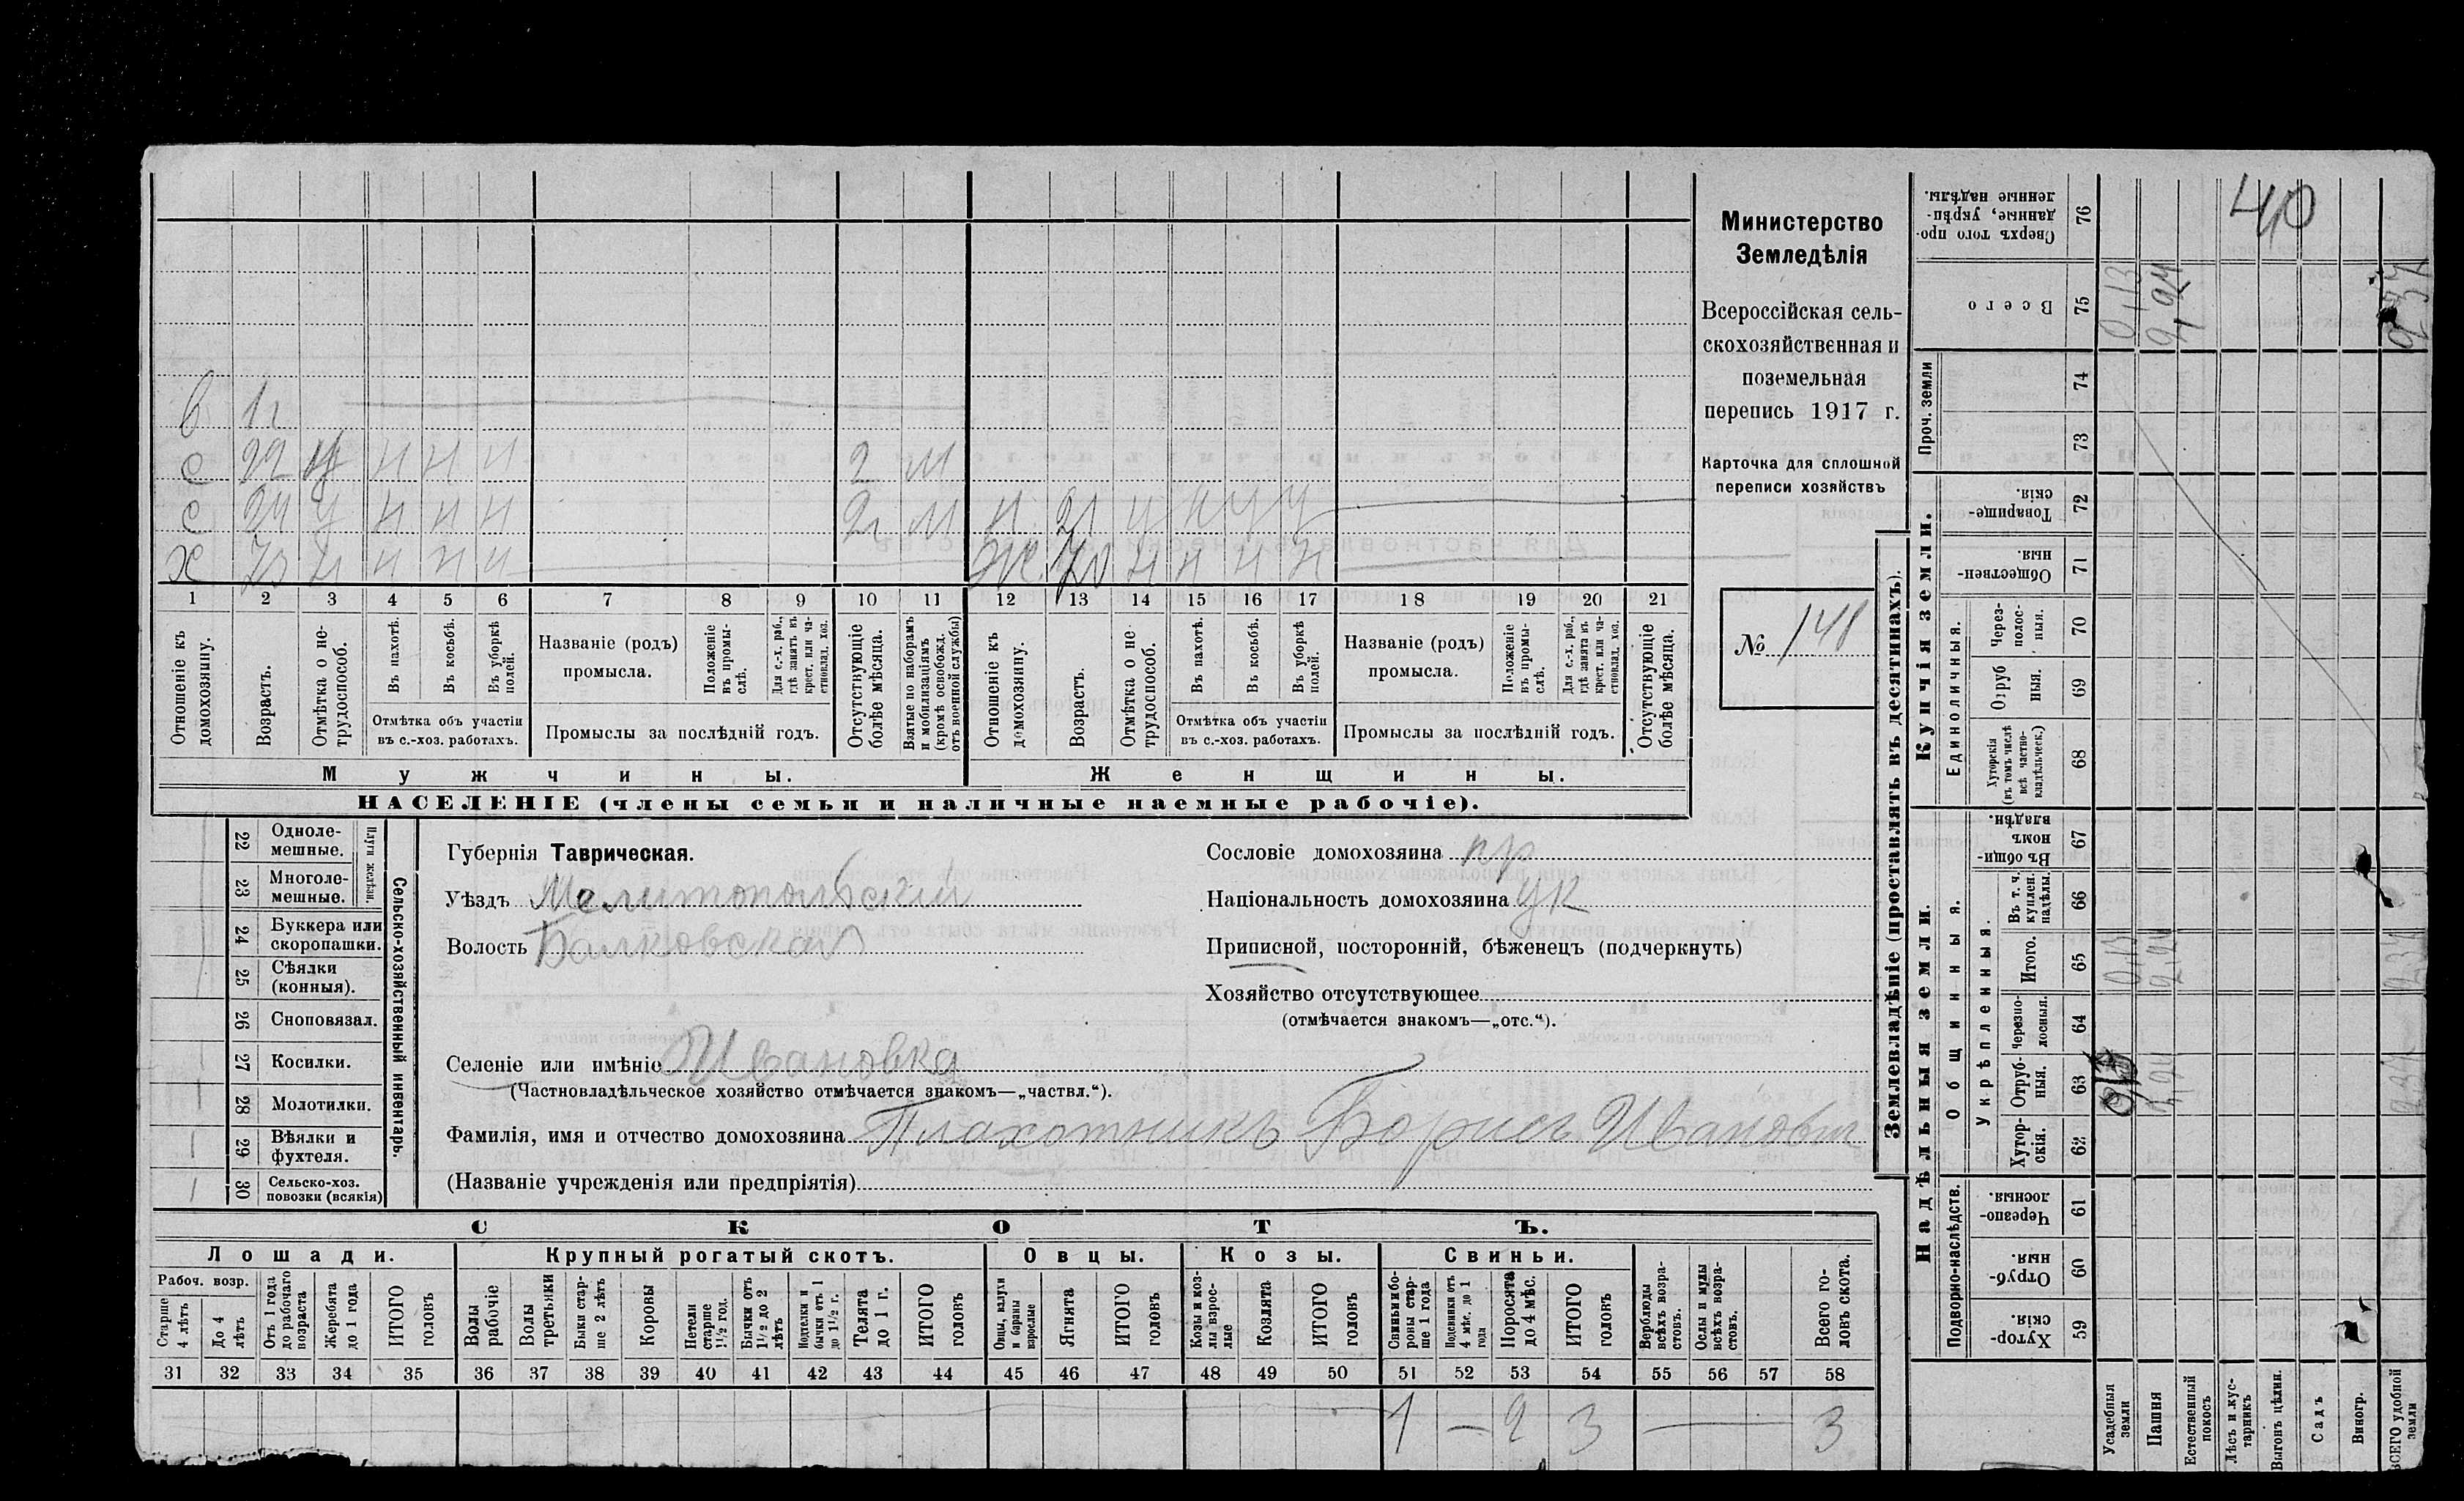 40
Министерство
Земледѣлія
Всероссійская сель-
скохозяйственная и
поземельная
перепись 1917 г.
Карточка для сплошной
переписи хозяйствъ
№ 148
в 1г
с 22 н н н 2 м
с 24 н н н 2 м
х 73 н н н Ж 70 н н н н
1 2 3 4 5 6 7 8 9 10 11 12 13 14 15 16 17 18 19 20 21
Отношеніе къ домохозяину.
Возрастъ.
Отмѣтка о не-трудоспособ.
Въ пахотѣ.
Въ косьбѣ.
Въ уборкѣ полей.
Отмѣтка объ участіи
въ с.-хоз. работахъ.
Названіе (родъ)
промысла.
Положеніе въ промы-слѣ.
Для с.-х. раб., гдѣ занятъ въ крест. или ча-стновлад. хоз.
Промыслы за послѣдній годъ.
Отсутствующіе болѣе мѣсяца.
Взятые по наборамъ и мобилизаціямъ (кромѣ освобожд. отъ военной службы)
Отношеніе къ домохозяину.
Возрастъ.
Отмѣтка о не-трудоспособ.
Въ пахотѣ.
Въ косьбѣ.
Въ уборкѣ полей.
Отмѣтка объ участіи
въ с.-хоз. работахъ.
Названіе (родъ)
промысла.
Положеніе въ промы-слѣ.
Для с.-х. раб., гдѣ занятъ въ крест. или ча-стновлад. хоз.
Промыслы за послѣдній годъ.
Отсутствующіе болѣе мѣсяца.
Мужчины.
Женщины.
НАСЕЛЕНІЕ (члены семьи и наличные наемные рабочіе).
Сельско-хозяйственный инвентарь.
Плуги желѣзн.
22 Одноле-мешные.
23 Многоле-мешные.
24 Буккера или скоропашки.
25 Сѣялки (конныя).
26 Сноповязал.
27 Косилки.
28 Молотилки.
29 Вѣялки и фухтеля. 1
30 Сельско-хоз. повозки (всякія) 1
Губернія Таврическая.
Уѣздъ Мелитопольскій
Волость Балковская
Сословіе домохозяина кр
Національность домохозяина ук
Приписной, посторонній, бѣженецъ (подчеркнуть)
Хозяйство отсутствующее
(отмѣчается знакомъ—„отс.“).
Селеніе или имѣніе Ивановка
(Частновладѣльческое хозяйство отмѣчается знакомъ—„частвл.“).
Фамилія, имя и отчество домохозяина Плахотникъ Борисъ Иванович
(Названіе учрежденія или предпріятія)
СКОТЪ.
Лошади. Крупный рогатый скотъ. Овцы. Козы. Свиньи.
Рабоч. возр.
Старше 4 лѣтъ
До 4 лѣтъ
Отъ 1 года до рабочаго возраста
Жеребята до 1 года
ИТОГО головъ
Волы рабочіе
Волы третьяки
Быки стар-ше 2 лѣтъ
Коровы
Нетели старше 1½ год.
Бычки отъ 1½ до 2 лѣтъ
Подтелки и бычки отъ 1 до 1½ г.
Телята до 1 г.
ИТОГО головъ
Овцы, валухи и бараны взрослые
Ягнята
ИТОГО головъ
Козы и коз-лы взрос-лые
Козлята
ИТОГО головъ
Свиньи и бо-ровы стар-ше 1 года
Подсвинки отъ 4 мѣс. до 1 года
Поросята до 4 мѣс.
ИТОГО головъ
Верблюды всѣхъ возра-стовъ.
Ослы и мулы всѣхъ возра-стовъ.
Всего го-ловъ скота.
31 32 33 34 35 36 37 38 39 40 41 42 43 44 45 46 47 48 49 50 51 52 53 54 55 56 57 58
1 — 2 3 — 3
Землевладѣніе (проставлять въ десятинахъ).
Надѣльныя земли. Купчія земли. Проч. земли
Подворно-наслѣдств.
Общинныя.
Укрѣпленныя.
Единоличныя.
Хутор-скія. 59
Отруб-ныя. 60
Черезпо-лосныя. 61
Хутор-скія. 62
Отруб-ныя. 63
Черезпо-лосныя. 64
Итого. 65
Въ т. ч. куплен. надѣлы. 66
Въ общин-номъ владѣн. 67
Хуторскія (въ томъ числѣ всѣ частно-владѣльческ.) 68
Отруб ныя. 69
Через-полос-ныя. 70
Обществен-ныя. 71
Товарище-скія. 72
73
74
Всего 75
Сверхъ того про-данные, укрѣп-ленные надѣлы. 76
Усадебныя земли 0,13 0,13
Пашня
Естественный покосъ
Лѣсъ и кус-тарникъ
Выгонъ цѣлин.
Садъ
Виногр.
ВСЕГО удобной земли